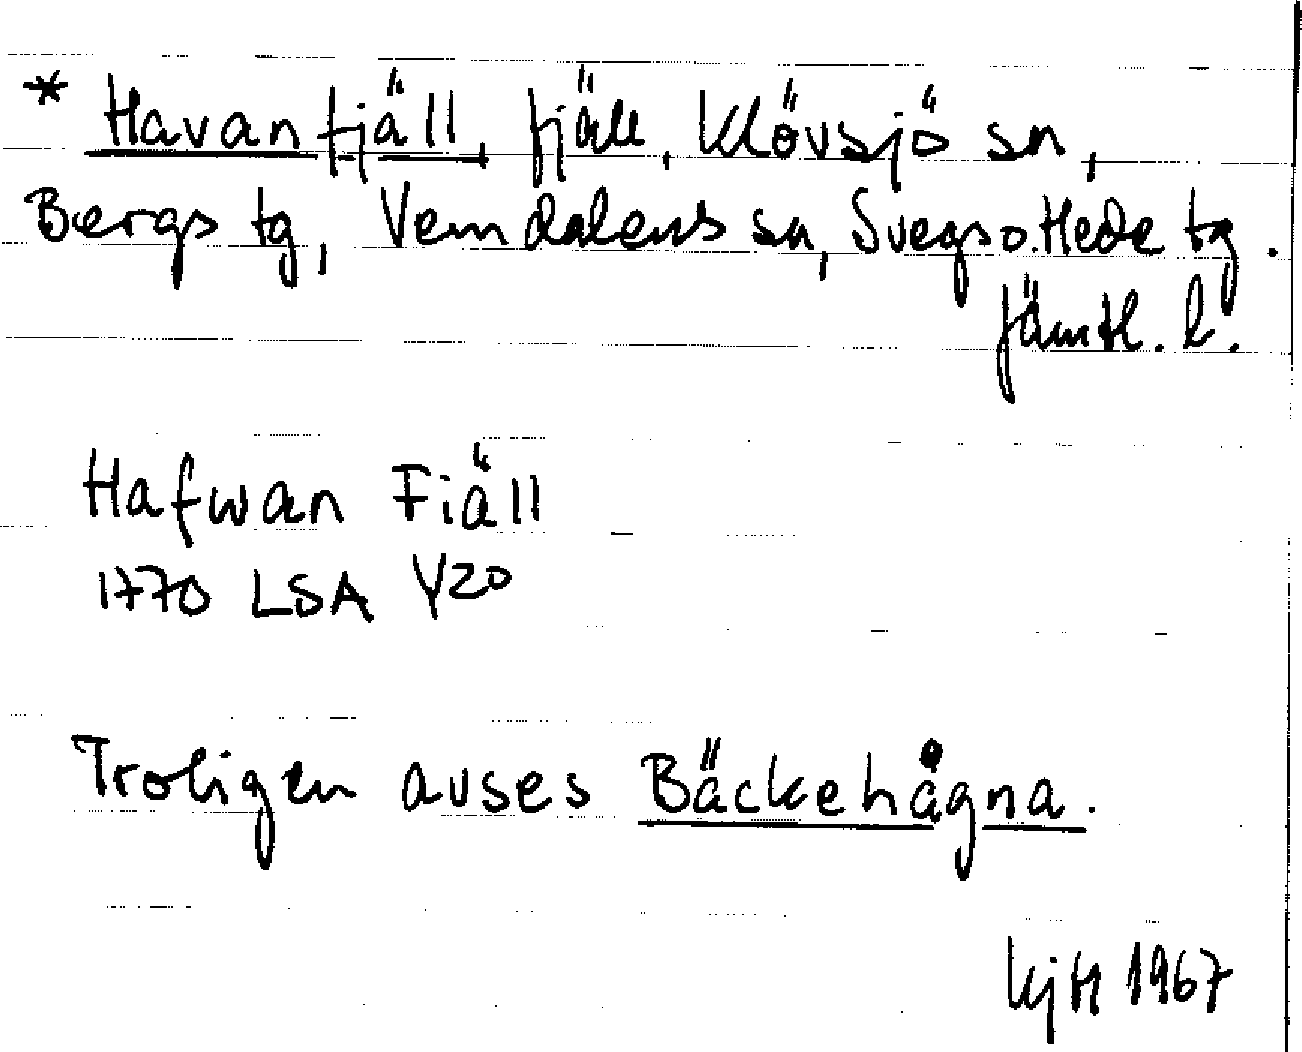 * Havanfjäll, fjäll, Klövsjö sn,
Bergs tg, Vemdalens sn, Svegs o. Hede tg.
Jämtl. l.
Hafwan Fiäll
1770 LSA Y20
Troligen avses Bäckehågna.
KjH 1967